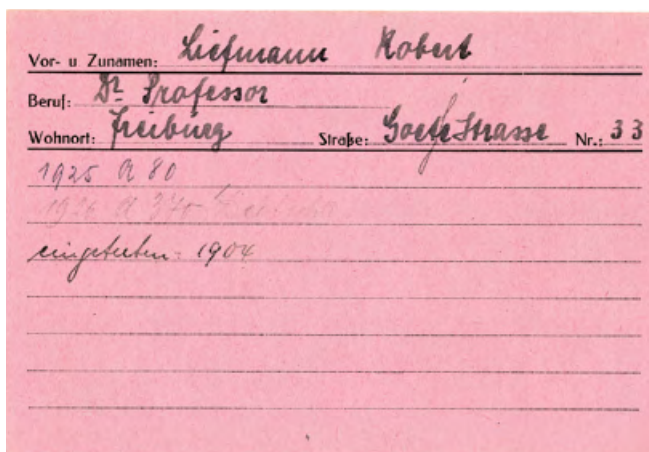 Vor- u Zunamen: Liefmann Robert
Beruf: Dr Professor
Wohnort: Freiburg Straße: Goethe Strasse Nr.: 33
1925 A 80
1926 A
eingetreten: 1904